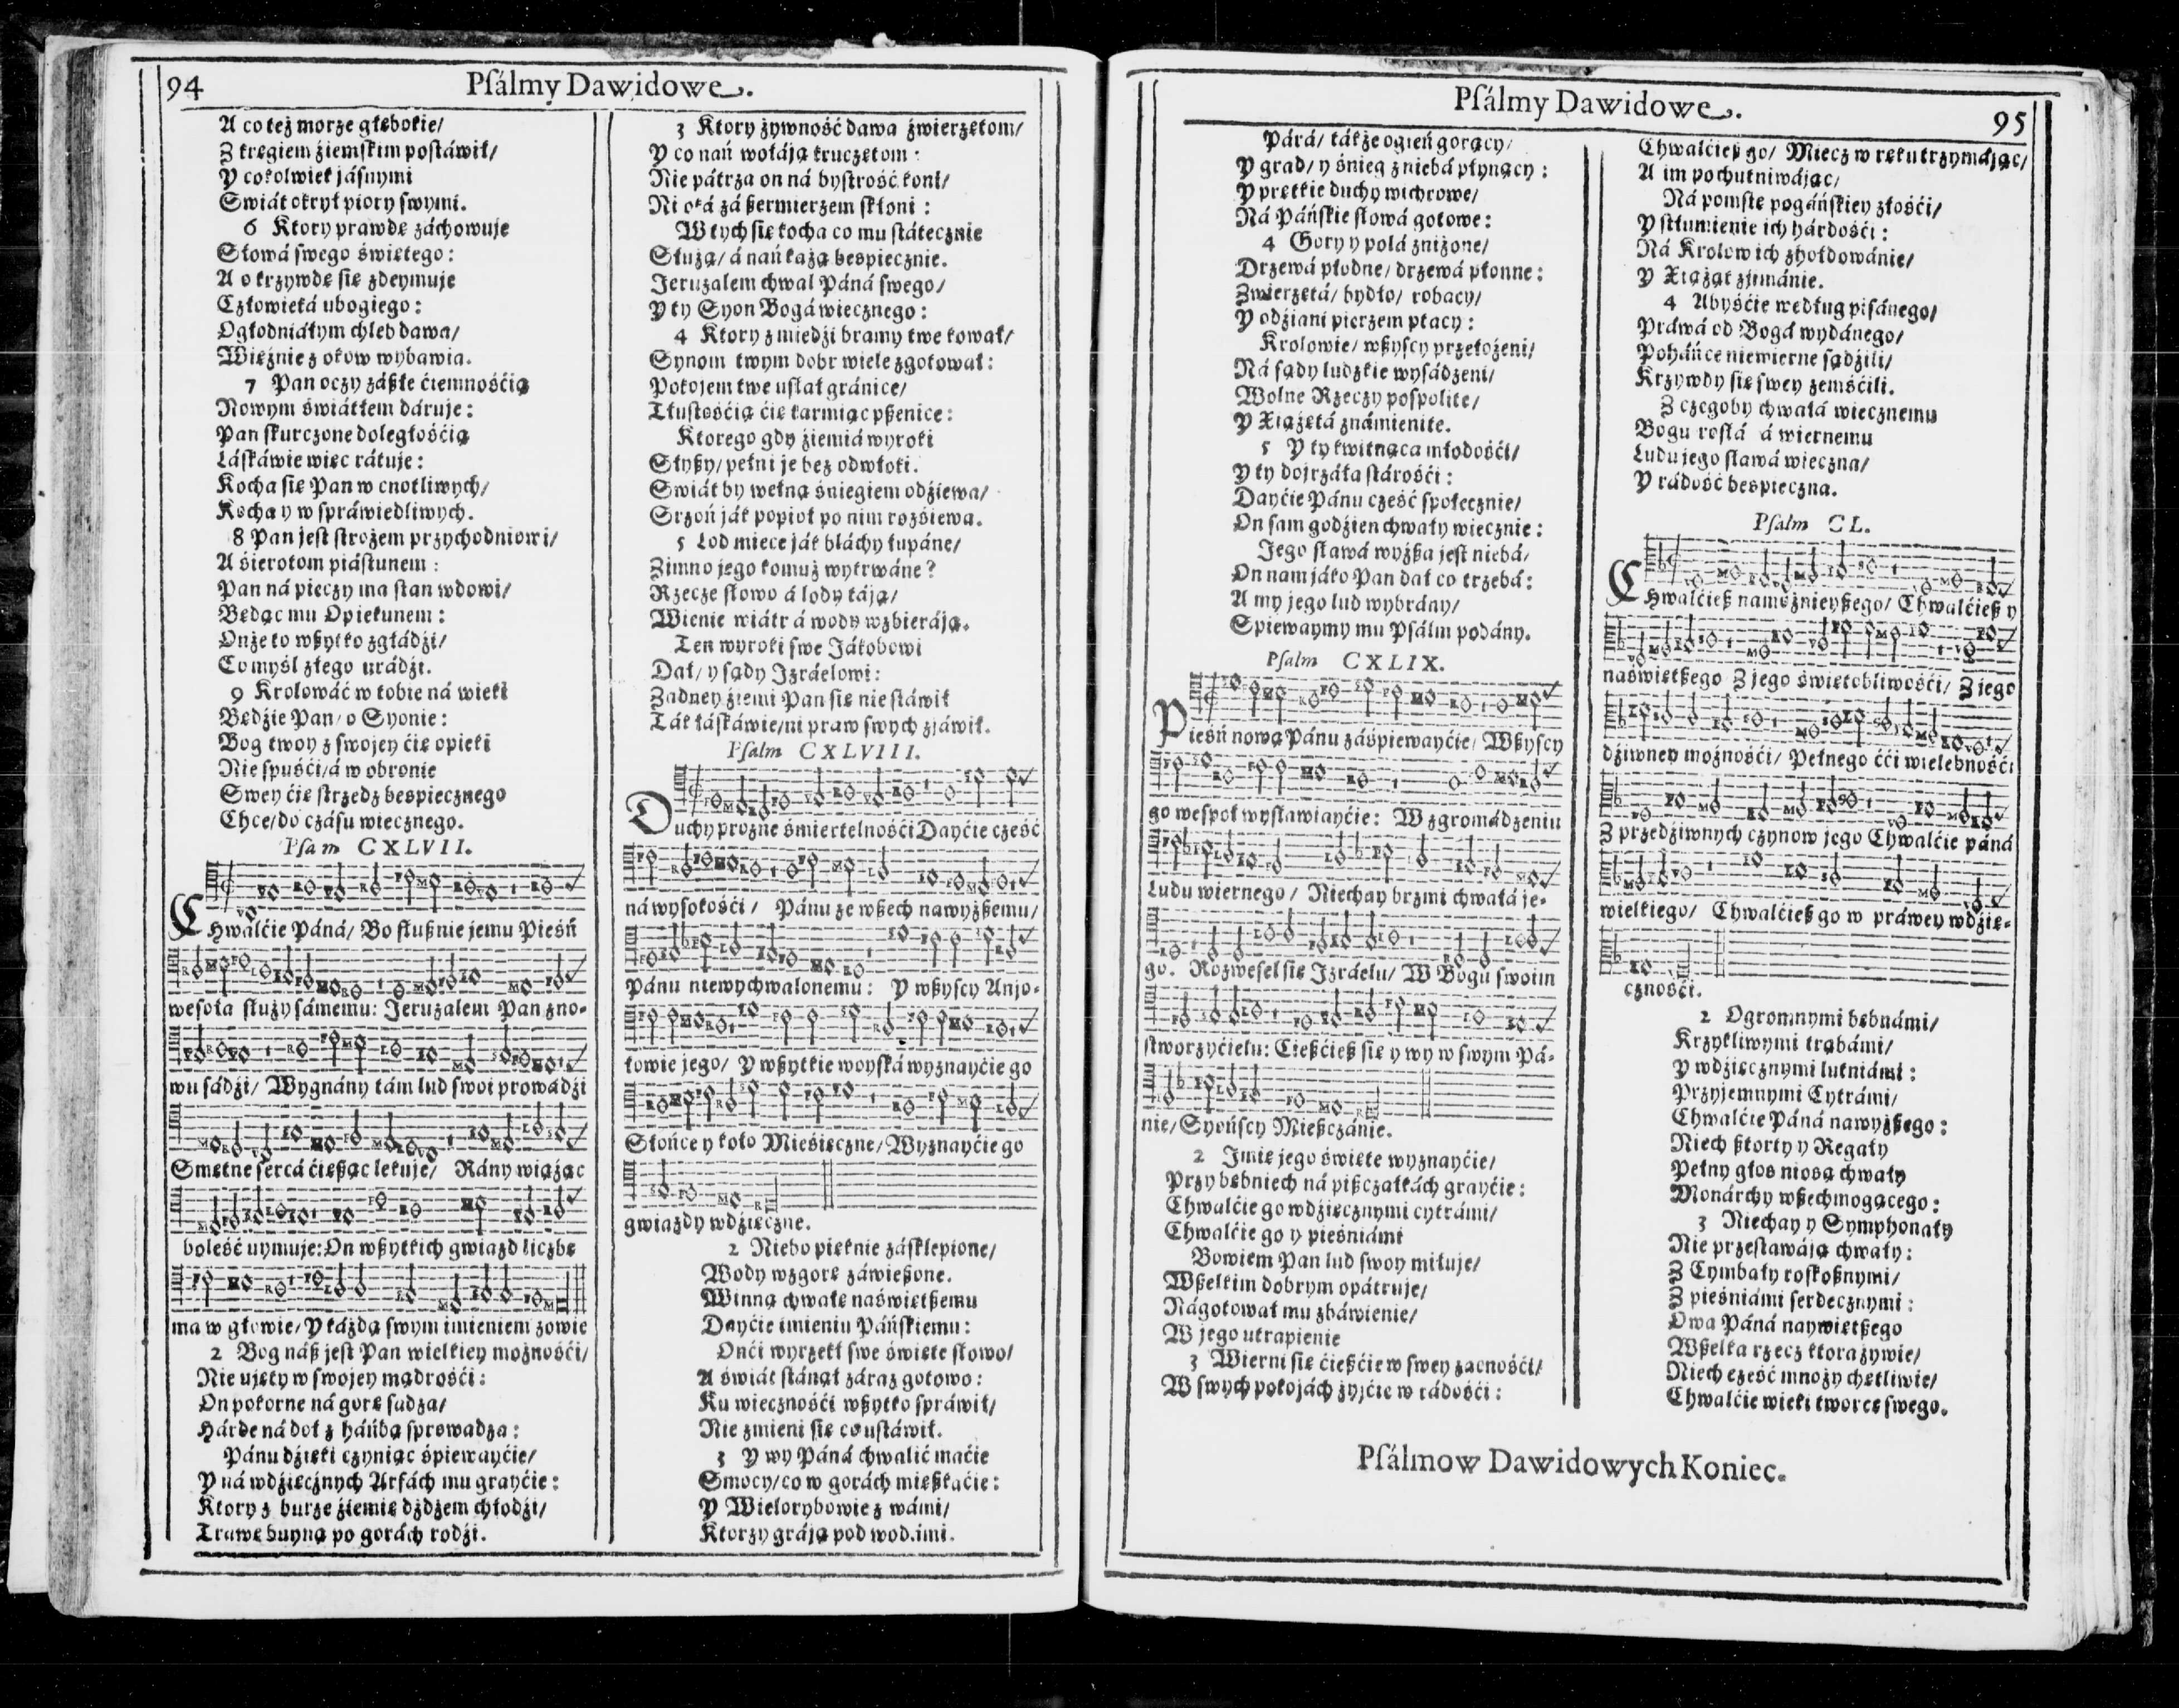 94
Psálmy Dawidowe.
A co też morze głębokie/
Z kręgiem ziemskim postáwił/
Y cokolwiek jásnymi
Swiát okrył piory swymi.
6 Ktory prawdę záchowuje
Słowá swego świętego:
A o krzywdę się zdeymuje
Człowieká ubogiego:
Ogłodniáłym chleb dawa/
Więźnie z okow wybawia.
7 Pan oczy zászłe ćiemnośćią
Nowym świátłem dáruje:
Pan skurczone doległośćią
Láskáwie więc rátuje:
Kocha się Pan w cnotliwych/
Kocha y w spráwiedliwych.
8 Pan jest strożem przychodniowi/
A śierotom piástunem:
Pan ná pieczy ma stan wdowi/
Będąc mu Opiekunem:
Onże to wszytko zgłádźi/
Co myśl złego urádźi.
9 Krolowáć w tobie ná wieki
Będźie Pan/ o Syonie:
Bog twoy z swojey ćię opieki
Nie spuśći/ á w obronie
Swey ćię strzedz bespiecznego
Chce/ do czásu wiecznego.
Psalm CXLVII.
CHwalćie Páná/ Bo słusznie jemu Pieśń
wesoła służy sámemu: Jeruzalem Pan zno-
wu sádźi/ Wygnány tám lud swoi prowádźi
Smętne sercá ćiesząc lekuje/ Rány wiążąc
boleść uymuje: On wszytkich gwiazd liczbę
ma w głowie/ Y káżdą swym imieniem zowie
2 Bog nász jest Pan wielkiey możnośći/
Nie ujęty w swojey mądrośći:
On pokorne ná gorę sadza/
Hárde ná doł z háńbą sprowadza:
Pánu dźięki czyniąc śpiewayćie/
Y ná wdźięcznych Arfách mu grayćie:
Ktory z burze źiemię dżdżem chłodźi/
Trawę buyną po gorách rodźi.
3 Ktory żywność dawa źwierzętom/
Y co nań wołáją kruczętom:
Nie pátrza on ná bystrość koni/
Ni oká zá szermierzem skłoni:
W tych się kocha co mu státecznie
Służą/ á nań każą bespiecznie.
Jeruzalem chwal Páná swego/
Y ty Syon Bogá wiecznego:
4 Ktory z miedźi bramy twe kował/
Synom twym dobr wiele zgotował:
Pokojem twe usłał gránice/
Tłustośćią ćię karmiąc pszenice:
Ktorego gdy źiemiá wyroki
Słyszy/ pełni je bez odwłoki.
Swiát by wełną śniegiem odźiewa/
Srzoń ják popioł po nim rozśiewa.
5 Lod miece ják bláchy łupáne/
Zimno jego komuż wytrwáne?
Rzecze słowo á lody tája/
Wienie wiátr á wody wzbierája.
Ten wyroki swe Jákobowi
Dał/ y sądy Izráelowi:
Żadney źiemi Pan się nie stáwił
Ták łáskáwie/ ni praw swych zjáwił.
Psalm CXLVIII.
Duchy prozne śmiertelnośći Dayćie cześć
ná wysokośći/ Pánu ze wszech nawyższemu/
Pánu niewychwalonemu: Y wszyscy Anjo-
łowie jego/ Y wszytkie woyská wyznayćie go
Słońce y koło Mieśięczne/ Wyznayćie go
gwiazdy wdźięczne.
2 Niebo pięknie zásklepione/
Wody wzgorę záwieszone.
Winną chwałę naświętszemu
Dayćie imieniu Páńskiemu:
Onći wyrzekł swe święte słowo/
A świát stánął záraz gotowo:
Ku wiecznośći wszytko spráwił/
Nie zmieni się co ustáwił.
3 Y wy Páná chwalić maćie
Smocy/ co w gorách mieszkaćie:
Y Wielorybowie z wámi/
Ktorzy grája pod wodámi.
Psálmy Dawidowe.
95
Párá/ tákże ogień gorący/
Y grad/ y śnieg z niebá płynący:
Y prętkie duchy wichrowe/
Ná Páńskie słowá gotowe:
4 Gory y polá zniżone/
Drzewá płodne/ drzewá płonne:
Zwierzętá/ bydło/ robacy/
Y odźiani pierzem ptacy:
Krolowie/ wszyscy przełożeni/
Ná sądy ludzkie wysádzeni/
Wolne Rzeczypospolite/
Y Xiążętá známienite.
5 Y ty kwitnąca młodośći/
Y ty dojrzáła stárośći:
Dayćie Pánu cześć społecznie/
On sam godźien chwały wiecznie:
Jego sławá wyższa jest niebá/
On nam jáko Pan dał co trzebá:
A my jego lud wybrány/
Spiewaymy mu Psálm podány.
Psalm CXLIX.
Pieśń nową Pánu záśpiewayćie/ Wszyscy
go wespoł wysławiayćie: W zgromádzeniu
Ludu wiernego/ Niechay brzmi chwałá je-
go. Rozwesel się Izráelu/ W Bogu swoim
stworzyćielu: Cieszćiesz się y wy w swym Pá-
nie/ Syońscy Mieszczánie.
2 Imię jego święte wyznayćie/
Przy bębniech ná piszczałkách grayćie:
Chwalćie go wdźięcznymi cytrámi/
Chwalćie go y pieśniámi
Bowiem Pan lud swoy miłuje/
Wszelkim dobrym opátruje/
Nágotował mu zbáwienie/
W jego utrapienie
3 Wierni się ćieszćie w swey zacnośći/
W swych pokojách żyjćie w rádośći:
Chwalćiesz go/ Miecz w ręku trzymájąc/
A im pochutniwájąc/
Ná pomstę pogáńskiey złośći/
Y stłumienie ich hárdośći:
Ná Krolow ich zhołdowánie/
Y Xiążąt zjmánie.
4 Abyśćie według pisánego/
Práwá od Bogá wydánego/
Poháńce niewierne sądźili/
Krzywdy się swey zemśćili.
Z czegoby chwałá wiecznemu
Bogu rosłá á wiernemu
Ludu jego sławá wieczna/
Y rádość bespieczna.
Psalm CL.
CHwalćiesz namożnieyszego/ Chwalćiesz y
naświętszego Z jego świętobliwośći/ Z jego
dźiwney możnośći/ Pełnego ćći wielebnośći
Z przedźiwnych czynow jego Chwalćie páná
wielkiego/ Chwalćiesz go w práwey wdźię-
cznośći.
2 Ogromnymi bębnámi/
Krzykliwymi trąbámi/
Y wdźięcznymi lutniámi:
Przyjemnymi Cytrámi/
Chwalćie Páná nawyższego:
Niech sztorty y Regały
Pełny głos niosą chwały
Monárchy wszechmogącego:
3 Niechay y Symphonały
Nie przestawáją chwały:
Z Cymbały roskosznymi/
Z pieśniámi serdecznymi:
Owa Páná naywiętszego
Wszelka rzecz ktora żywie/
Niech cześć mnoży chętliwie/
Chwalćie wieki tworcę swego.
Psálmow Dawidowych Koniec.